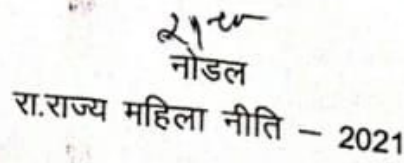 नोडल
रा.राज्य महिला नीति – 2021